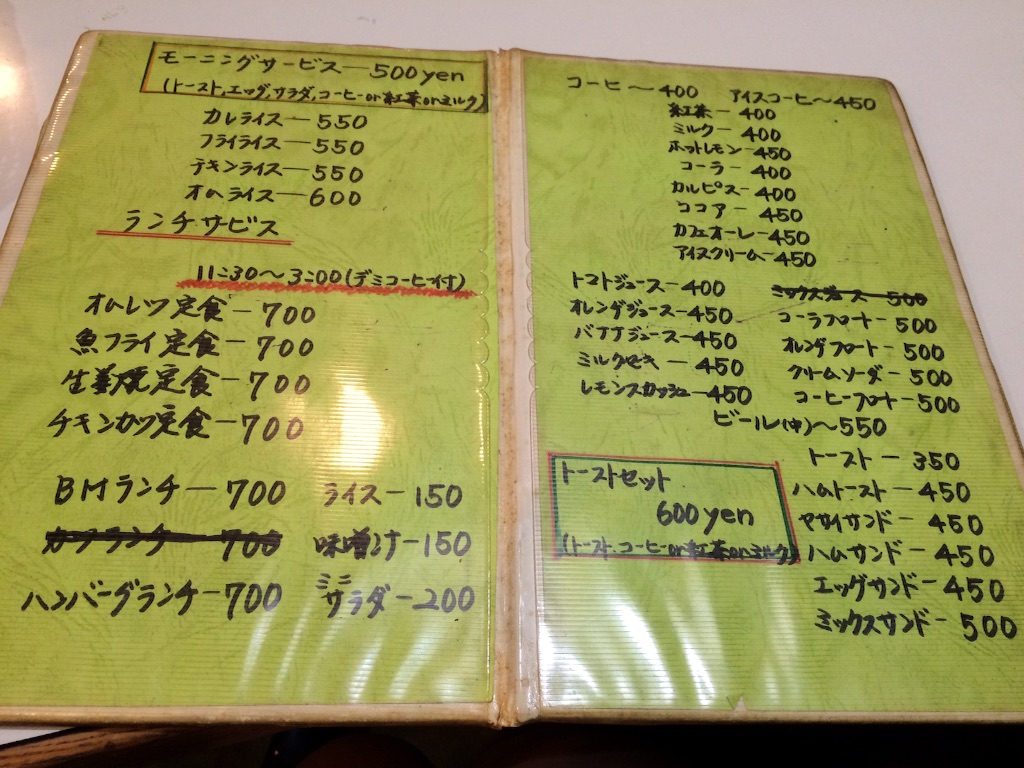 モーニングサービス―500yen
(トースト,エッグ,サラダ,コーヒーor紅茶orミルク)
カレライス―550
フライライス―550
チキンライス―550
オムライス―600
ランチサービス
11:30～3:00(デミコーヒー付)
オムレツ定食－700
魚フライ定食－700
生姜焼定食－700
チキンカツ定食－700
BMランチ―700
ライス－150
ランチ 700
味噌汁－150
ハンバーグランチ－700
ミニサラダ－200
コーヒ～400
アイスコーヒ～450
紅茶－400
ミルク－400
ホットレモン－450
コーラ－400
カルピス－400
ココア－450
カフェオーレ－450
アイスクリーム－450
トマトジュース－400
オレンヂジュース－450
バナナジュース－450
ミルクセキ―450
レモンスカッシュ－450
ミックスジュース－500
コーラフロート－500
オレンヂフロート－500
クリームソーダ－500
コーヒーフロート－500
ビール(中)～550
トースト－350
ハムトースト－450
ヤサイサンド－450
ハムサンド－450
エッグサンド－450
ミックスサンド－500
トーストセット
600yen
(トースト.コーヒーor紅茶orミルク)